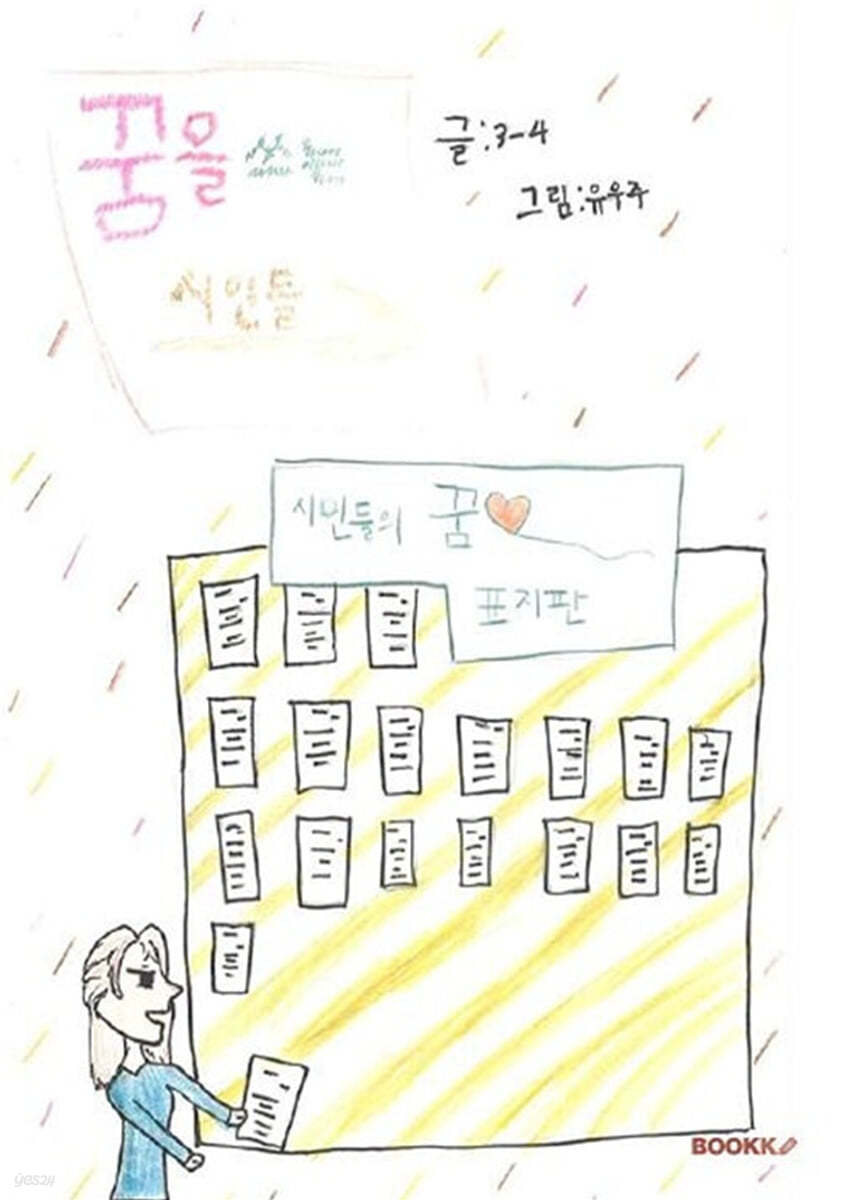 꿈을
글:3-4
그림:유우주
시민들의 꿈
표지판
BOOKK
yes24